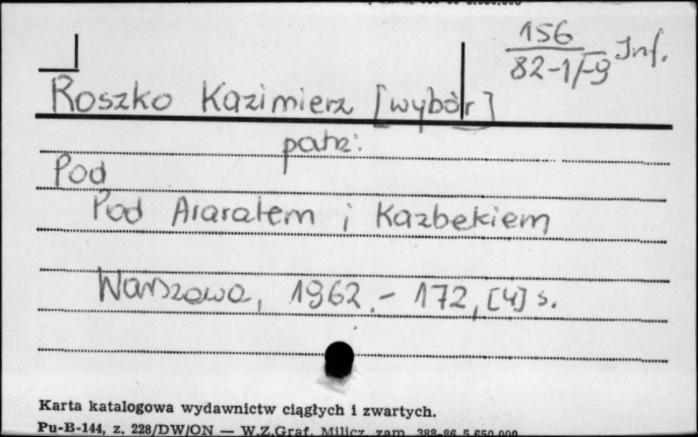 156
82-1/-9 Inf.
Roszko Kazimierz [wybór]
patrz:
Pod
Pod Araratem i Kazbekiem
Warszawa, 1962.- 172,[4] s.
Karta katalogowa wydawnictw ciągłych i zwartych.
Pu-B-144, z. 228/DW/ON — W.Z.Graf. Milicz zam. 388-86 5.650.000